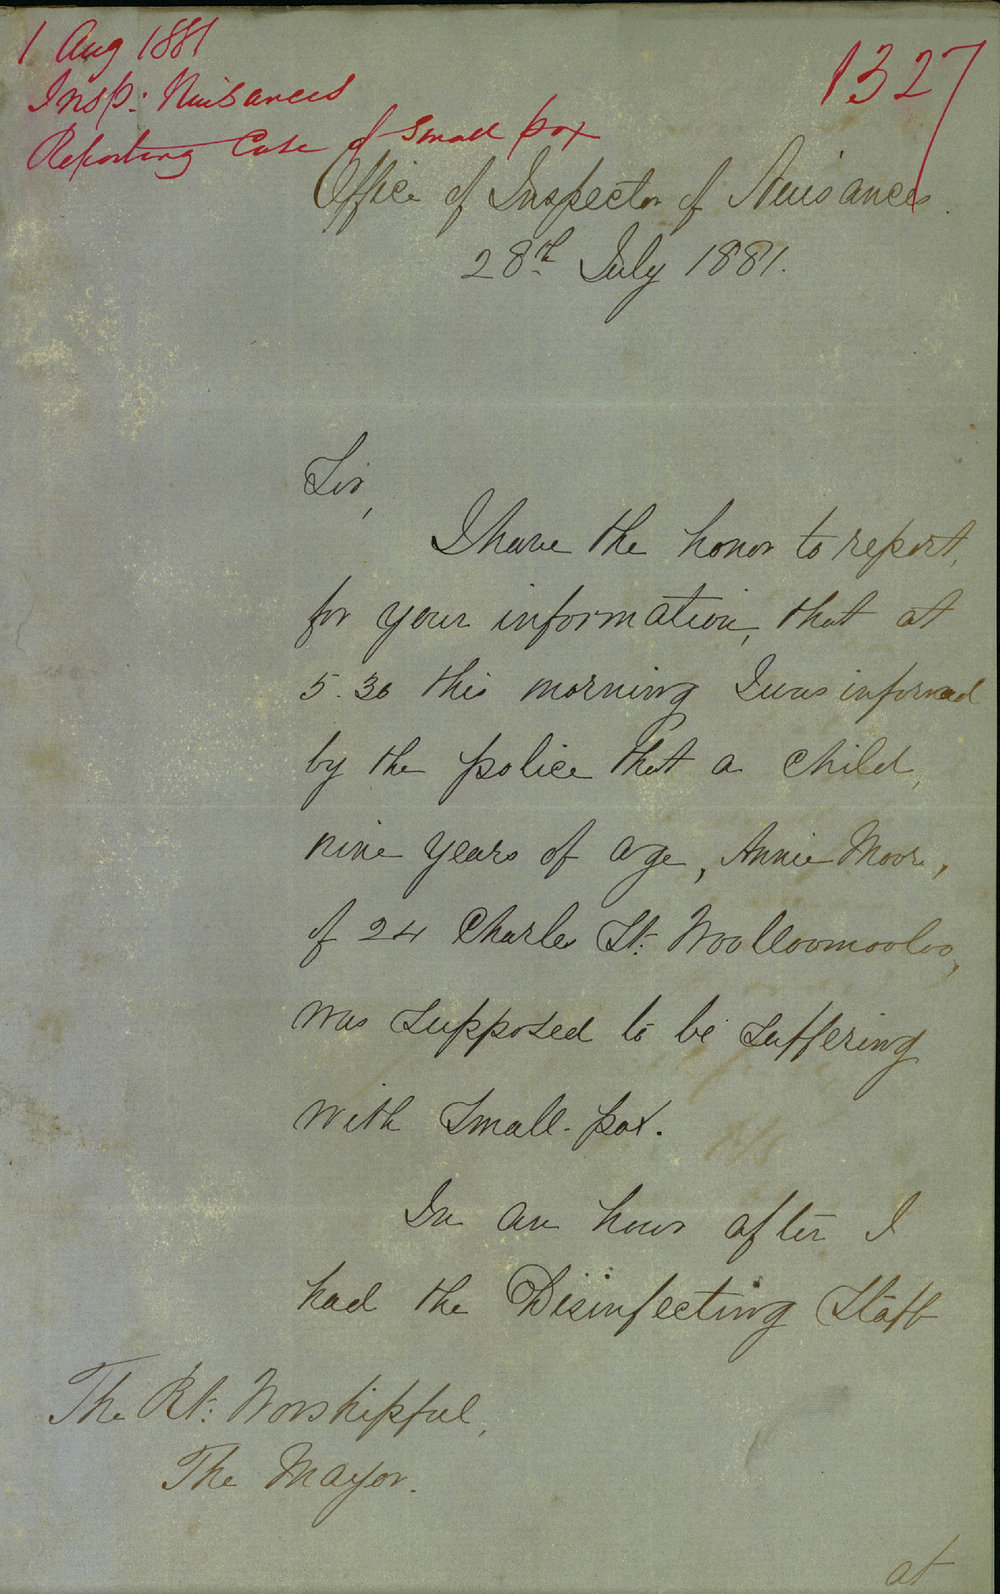 1 Aug 1881
Insp: Nuisances
Reporting Case of Small pox
1327
Office of Inspector of Nuisances.
28th July 1881.
Sir,
I have the honor to report,
for your information, that at
5.30 this morning I was informed
by the police that a child,
nine years of age, Annie Moore,
of 24 Charles St: Woolloomooloo,
was supposed to be suffering
with Small-pox.
In an hour after I
had the Disinfecting Staff
The Rt: Worshipful,
The Mayor.
at